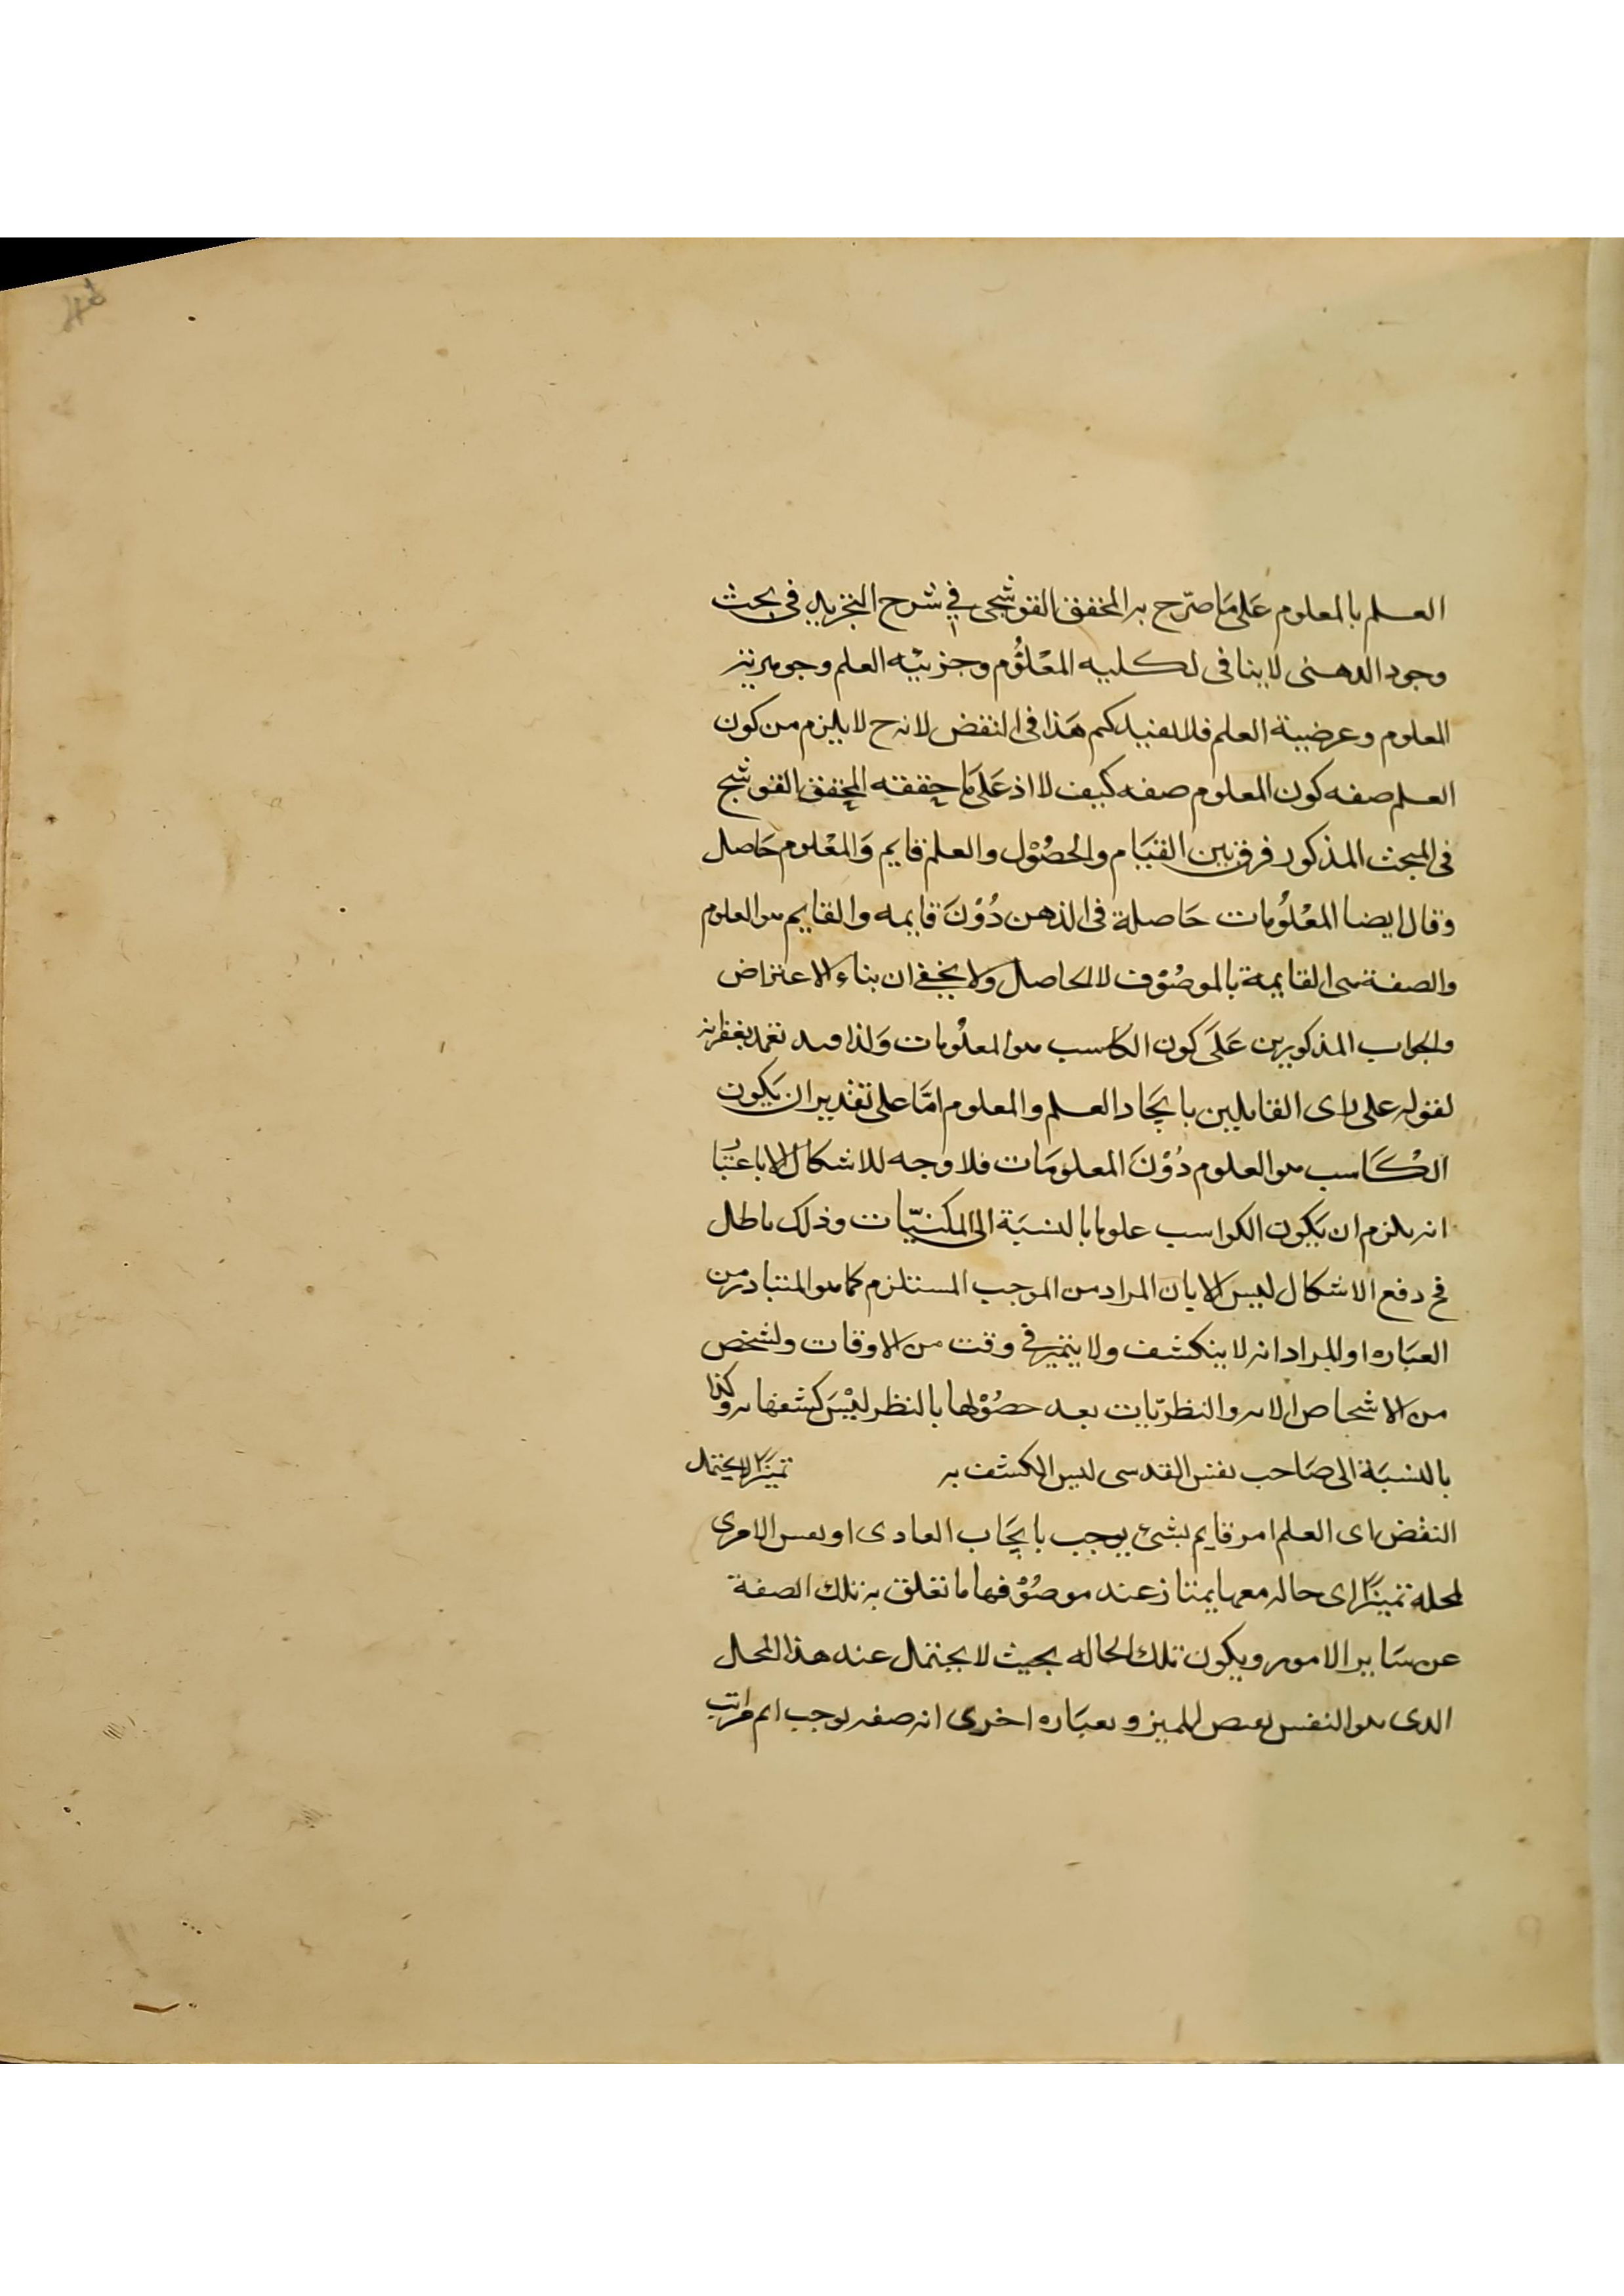 العلم بالمعلوم عَلى مَا صرّح به المحقق القوشجى في شرح التجريد فى بحث
وجود الدهنى لا ينافى لكليه المعْلوُم وجزئيّه العلم وجوهريّة
المعلوم وعرضيية العلم فلا يفيدكم هَذا فى النقض لانه ح لا يلزم من كون
العلم صفه كون المعلوم صفه كيف لا اذ عَلى مَا حققه المحقق القوشجى
فى المبحث المذكور فرق بين القيَام والحصُوْل والعلم قايم وَالمعْلوم حَاصل
وقال ايضا المعْلوُمات حَاصلة فى الذهن دُوْنَ قايمه والقايم هو العلوم
والصفة هى القايمة بالموصُوْف لا الحاصل ولا يخفى ان بناء الاعتراض
والجواب المذكورين عَلَى كون الكاسب هو المعلُومات وَلذا قيد
لقوله على راى القايلين باتحَاد العلم والمعلوم امّا على تقدير ان يَكون
الكَاسب هو العلوم دُوْنَ المعلومَات فلا وجه للاشكال الا باعتبَار
انه يلزم ان يَكون الكواسب علوما بالنسبَة الى المكتسبَات وذلك باطل
فح دفع الاشكال ليس الا بان المراد من الموجب المستلزم كما هو المتبادر من
العبَاره او المراد انه لا ينكشف ولا يتميز في وقت من الاوقات ولشخص
من الاشخاص الا به والنظريّات بعد حصُوْلها بالنظر ليْسَ كشفها به وكذا
بالنسبَة الى صَاحب نفس القدسى ليس الكشف به تميّزا لا يحتمل
النقض اى العلم امر قايم بشئ يوجب بايجَاب العادى او نفس الامرى
لمحله تميّزا اى حاله معها يمتاز عند موصُوْفها ما تعلق به تلك الصفة
عن سَاير الامور ويكون تلك الحاله بحيث لا يحتمل عند هذا المحل
الدى هو النفس نقيض المميز وبعبَاره اخرى انه صفه يوجب